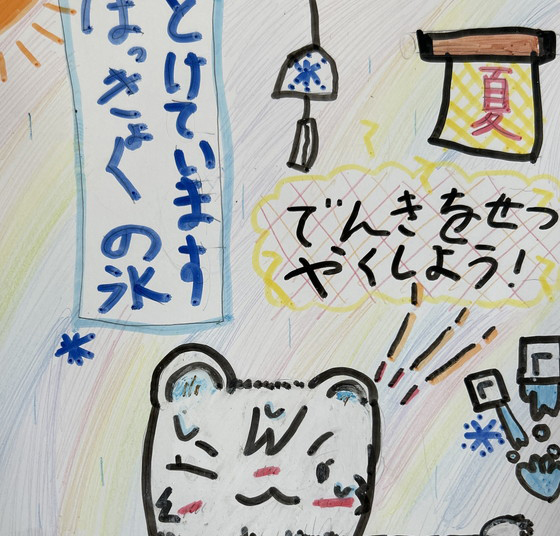 とけています
ほっきょくの氷
夏
でんきをせつ
やくしよう!